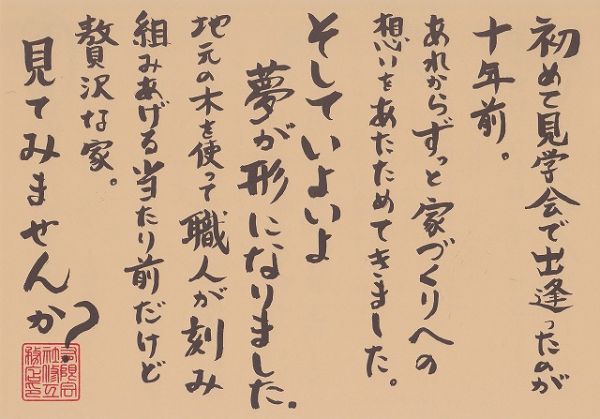 初めて見学会で出逢ったのが
十年前。
あれからずっと家づくりへの
想いをあたためてきました。
そしていよいよ
夢が形になりました.
地元の木を使って職人が刻み
組みあげる当たり前だけど
贅沢な家。
見てみませんか?